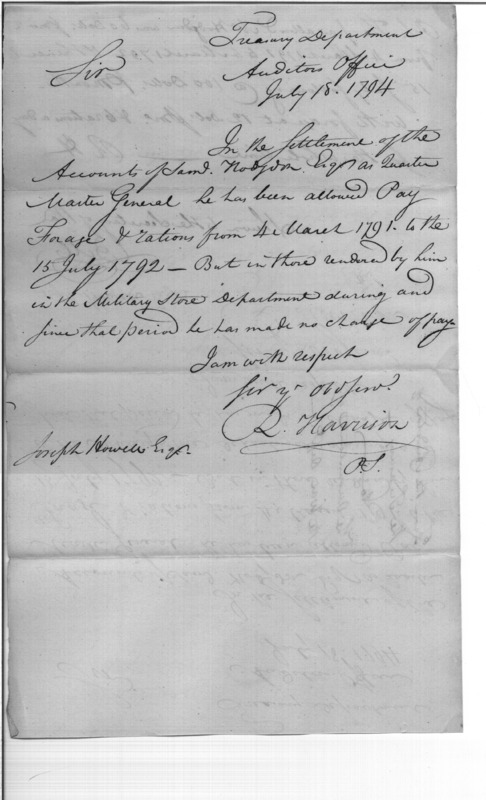 Treasury Department
Sir Auditors Office
July 18. 1794
In the Settlement of the
Accounts of Saml. Hodgdon Esqr as Quarter
Master General he has been allowed Pay
Forage & rations from 4 March 1791. to the
15 July 1792 — But in those rendered by him
in the Military Store Department during and
since that period he has made no charge of pay
I am with respect
Sir yr Obd Servt.
R. Harrison
Joseph Howell Esqr.